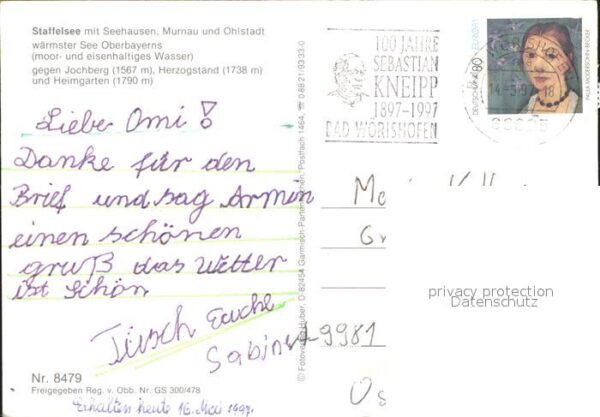 Staffelsee mit Seehausen, Murnau und Ohlstadt
wärmster See Oberbayerns
(moor- und eisenhaltiges Wasser)
gegen Jochberg (1567 m), Herzogstand (1738 m)
und Heimgarten (1790 m)
Liebe Omi!
Danke für den
Brief und sag Armen
einen schönen
gruß das Wetter
ist schön
Tüsch Euche
Sabine
Nr. 8479
Freigegeben Reg. v. Obb. Nr. GS 300/478
Erhalten heute 16. Mai 1997.
© Fotoverlag Huber, D-82454 Garmisch-Partenkirchen, Postfach 1464, ☎ 08821/9333-0
100 JAHRE
SEBASTIAN
KNEIPP
1897-1997
BAD WÖRISHOFEN
80
PAULA MODERSOHN-BECKER
14.-5.97.-18
9981
privacy protection
Datenschutz